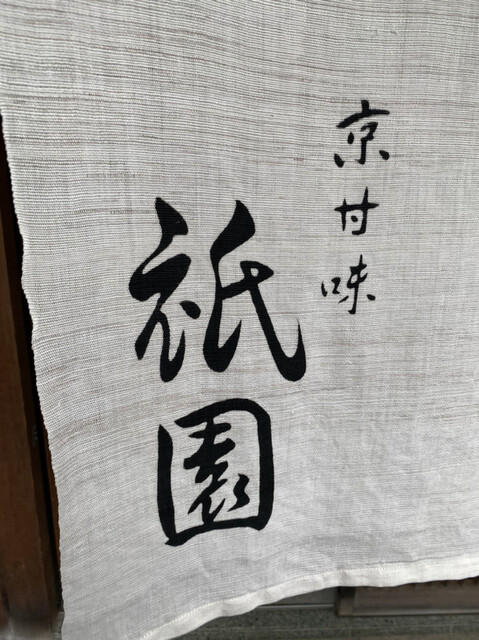 京甘味
祇園